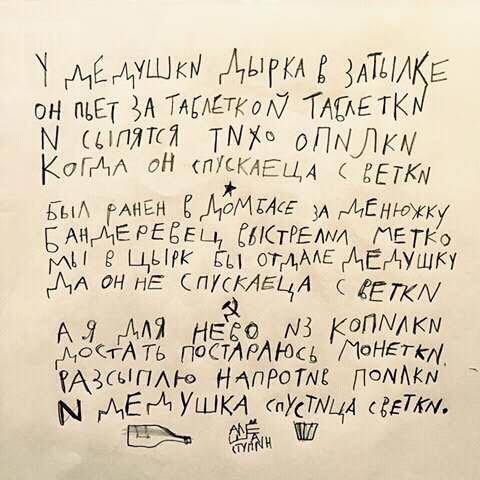 У ДЕДУШКИ ДЫРКА В ЗАТЫЛКЕ
ОН ПЬЕТ ЗА ТАБЛЕТКОЙ ТАБЛЕТКИ
И СЫПЯТСЯ ТИХО ОПИЛКИ
КОГДА ОН СПУСКАЕЦА С ВЕТКИ
БЫЛ РАНЕН В ДОМБАСЕ ЗА ДЕНЮЖКУ
БАНДЕРЕВЕЦ ВЫСТРЕЛИЛ МЕТКО
МЫ В ЩЫРК БЫ ОТДАЛЕ ДЕДУШКУ
ДА ОН НЕ СПУСКАЕЦА С ВЕТКИ
А Я ДЛЯ НЕВО ИЗ КОПИЛКИ
ДОСТАТЬ ПОСТАРАЮСЬ МОНЕТКИ.
РАЗСЫПЛЮ НАПРОТИВ ПОИЛКИ
И ДЕДУШКА СПУСТИЦА СВЕТКИ.
АЛЁ
ДА
СТУПИН